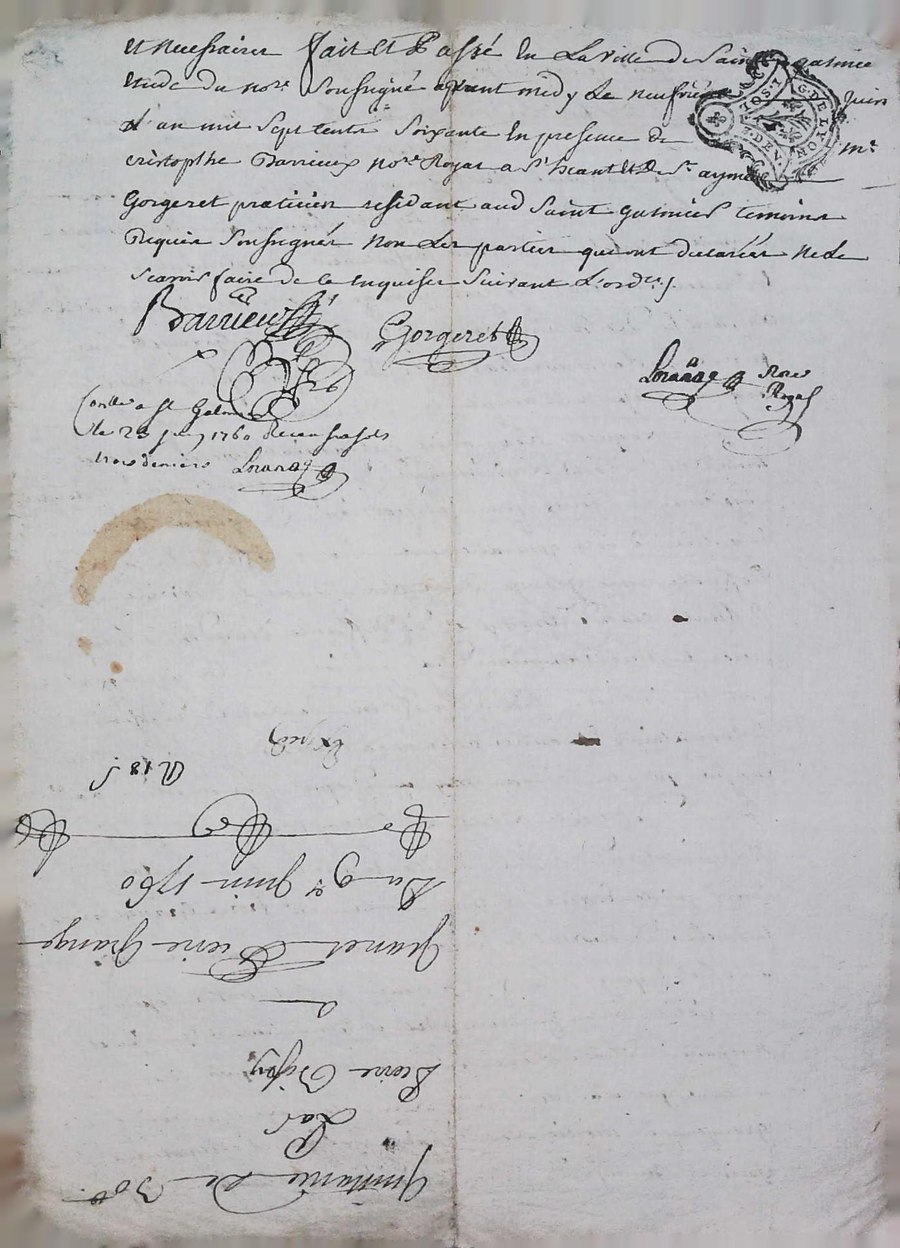 et necessaires fait et Passé en La ville de Saint galmier
etude du nore. soussigné avant midy Le neufvieme juin
L'an mil sept cents soixante En presence de mr.
cristophe Barrieux nore. Royal a St heant et De Sr. aymé
Gorgeret praticien residant aud saint galmier temoins
Requis soussignés Non Les parties qui ont declarées ne le
scavoir faire de ce enquises suivant L'ordce.
G. DE LYON
DEN.
Barrieux
Gorgeret
nore
Royal
Contlle a St Galmier
le 23 juin 1760 Recu
trois deniers
Quittance De 30 tt.
Par
Pierre
a
Pierre Grange
Du 9e. Juin 1760
R 18 s
Exped